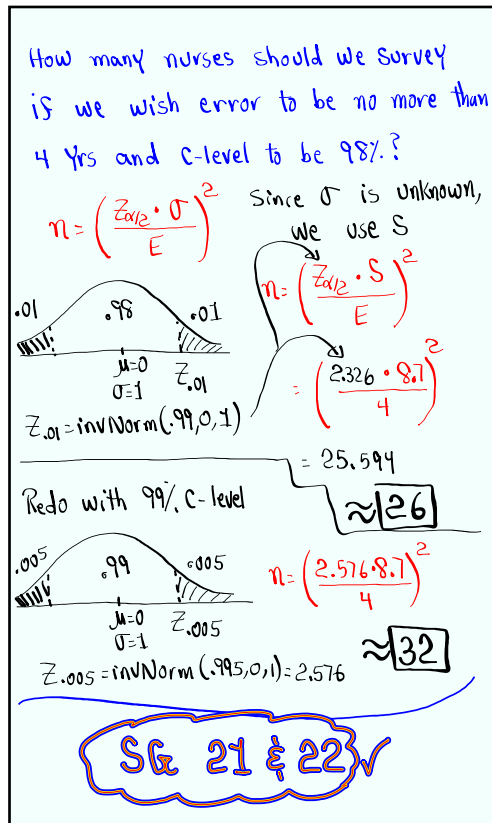 How many nurses should we survey
if we wish error to be no more than
4 Yrs and C-level to be 98%?
n = (Zα/2 · σ / E)²
Since σ is unknown,
we use S
n = (Zα/2 · S / E)²
.01 .98 .01
μ=0
σ=1
Z.01
= (2.326 · 8.7 / 4)²
Z.01 = invNorm(.99,0,1)
= 25.594
≈ 26
Redo with 99% C-level
.005 .99 .005
μ=0
σ=1
Z.005
n = (2.576 · 8.7 / 4)²
Z.005 = invNorm(.995,0,1) = 2.576
≈ 32
SG 21 & 22 ✓